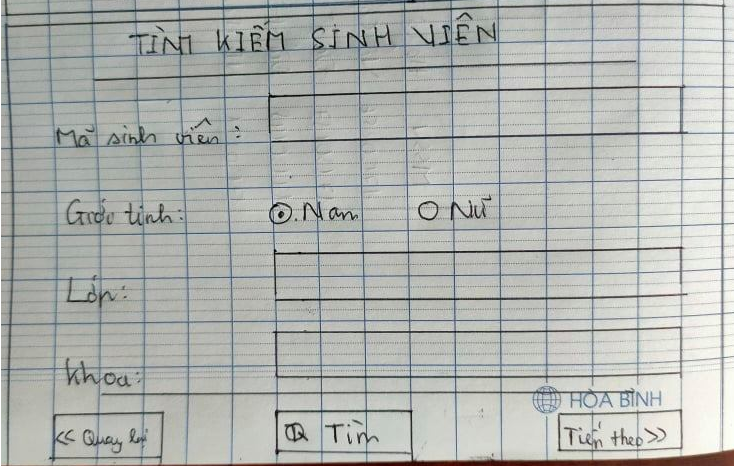 TÌM KIẾM SINH VIÊN
Mã sinh viên:
Giới tính: Nam Nữ
Lớp:
Khoa:
HÒA BÌNH
<< Quay lại Tìm Tiếp theo >>